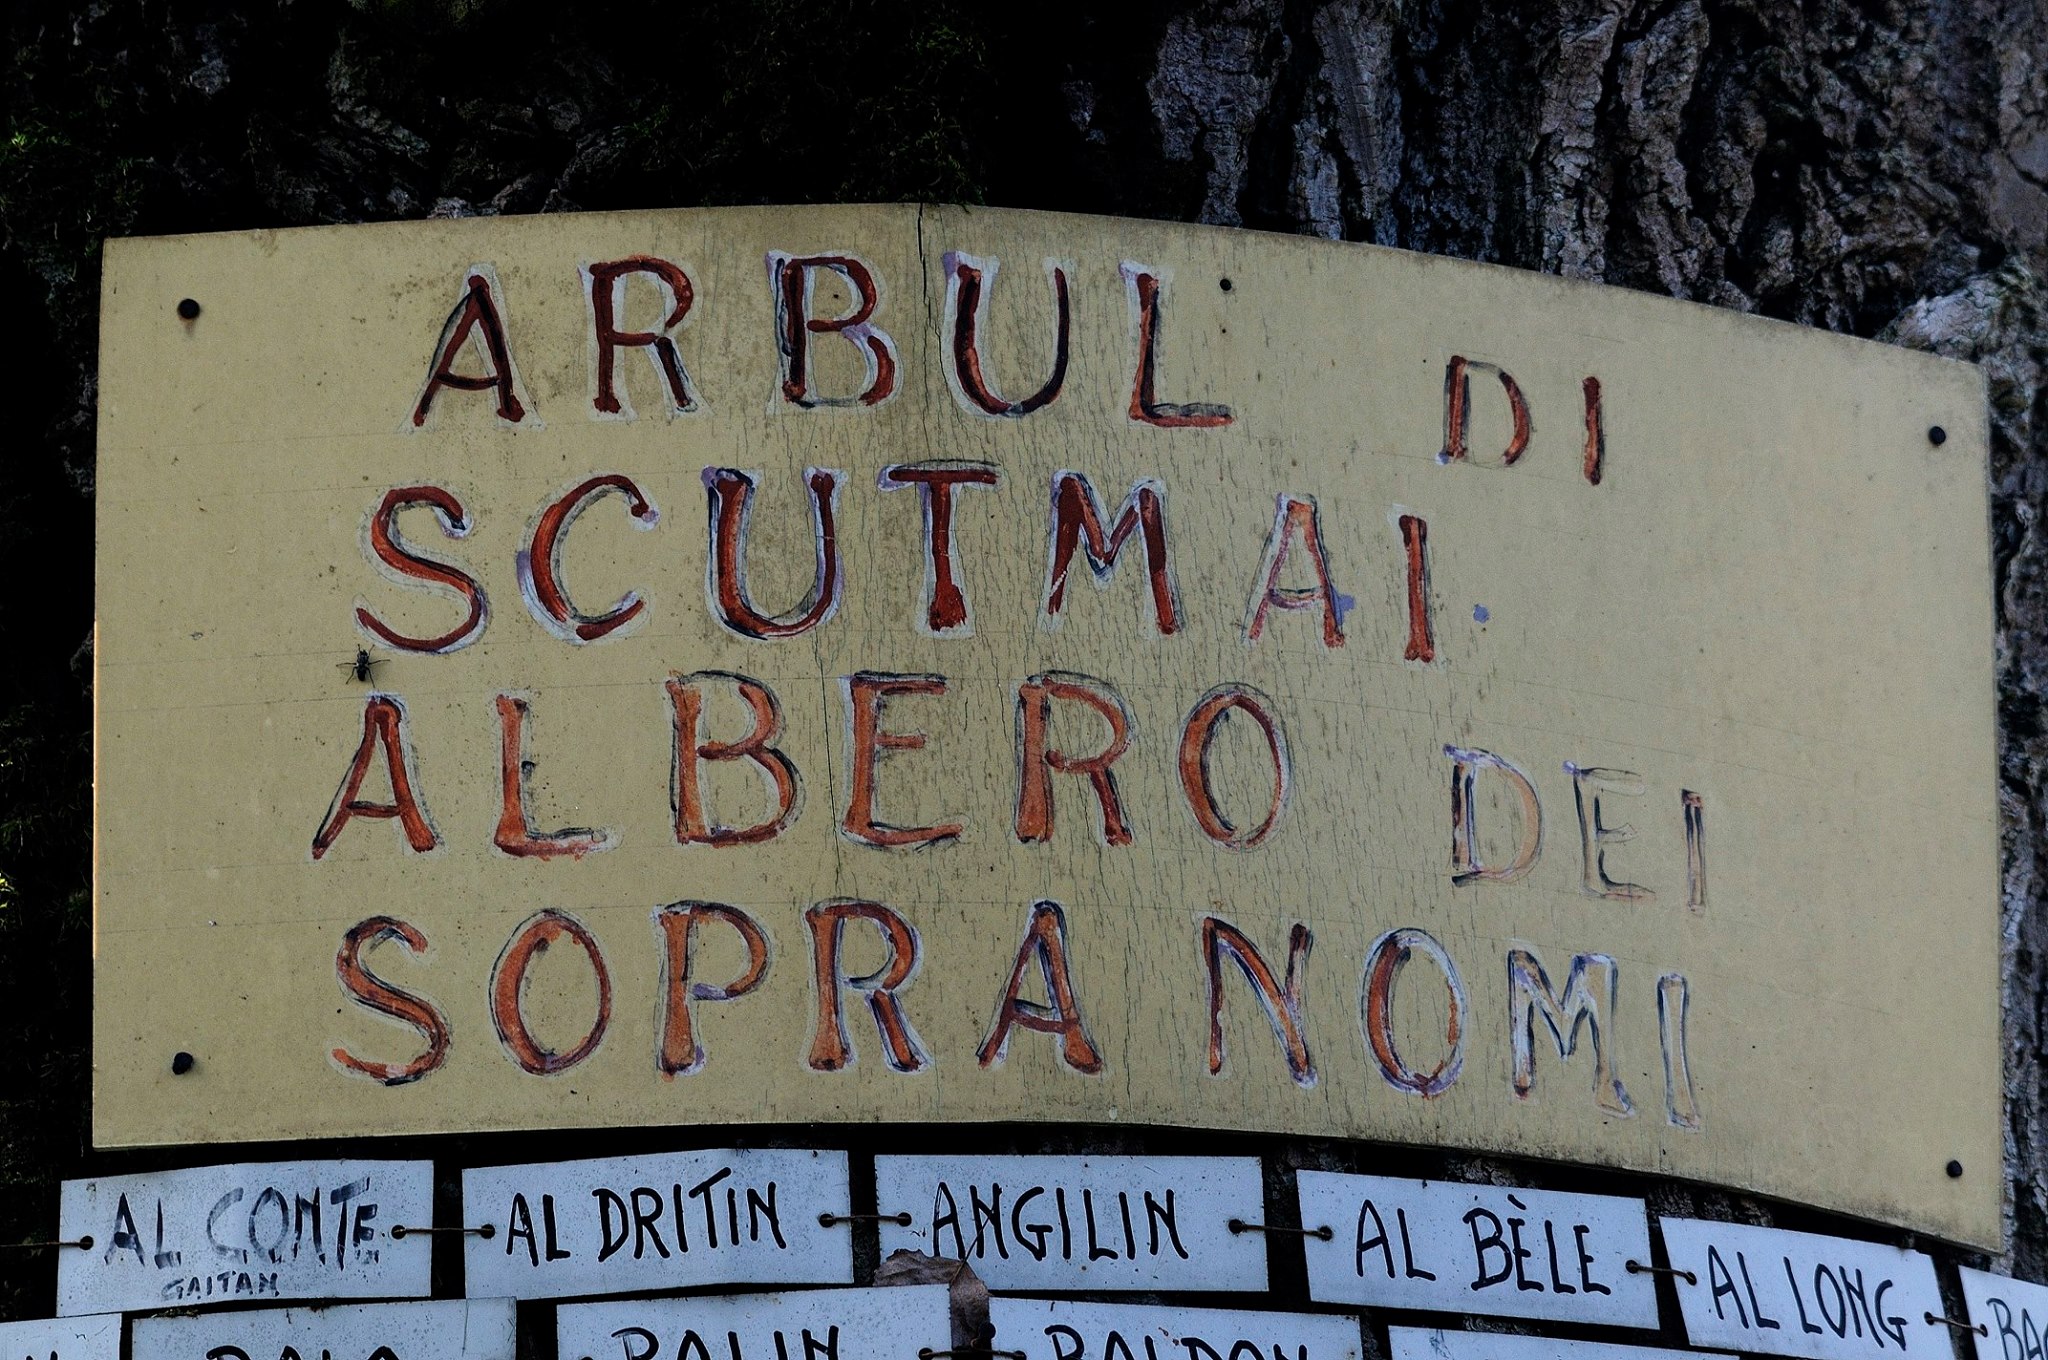 ARBUL DI
SCUTMAI
ALBERO DEI
SOPRANOMI
AL CONTE
GAITAN
AL DRITIN
ANGILIN
AL BÈLE
AL LONG
BALIN
BALDON